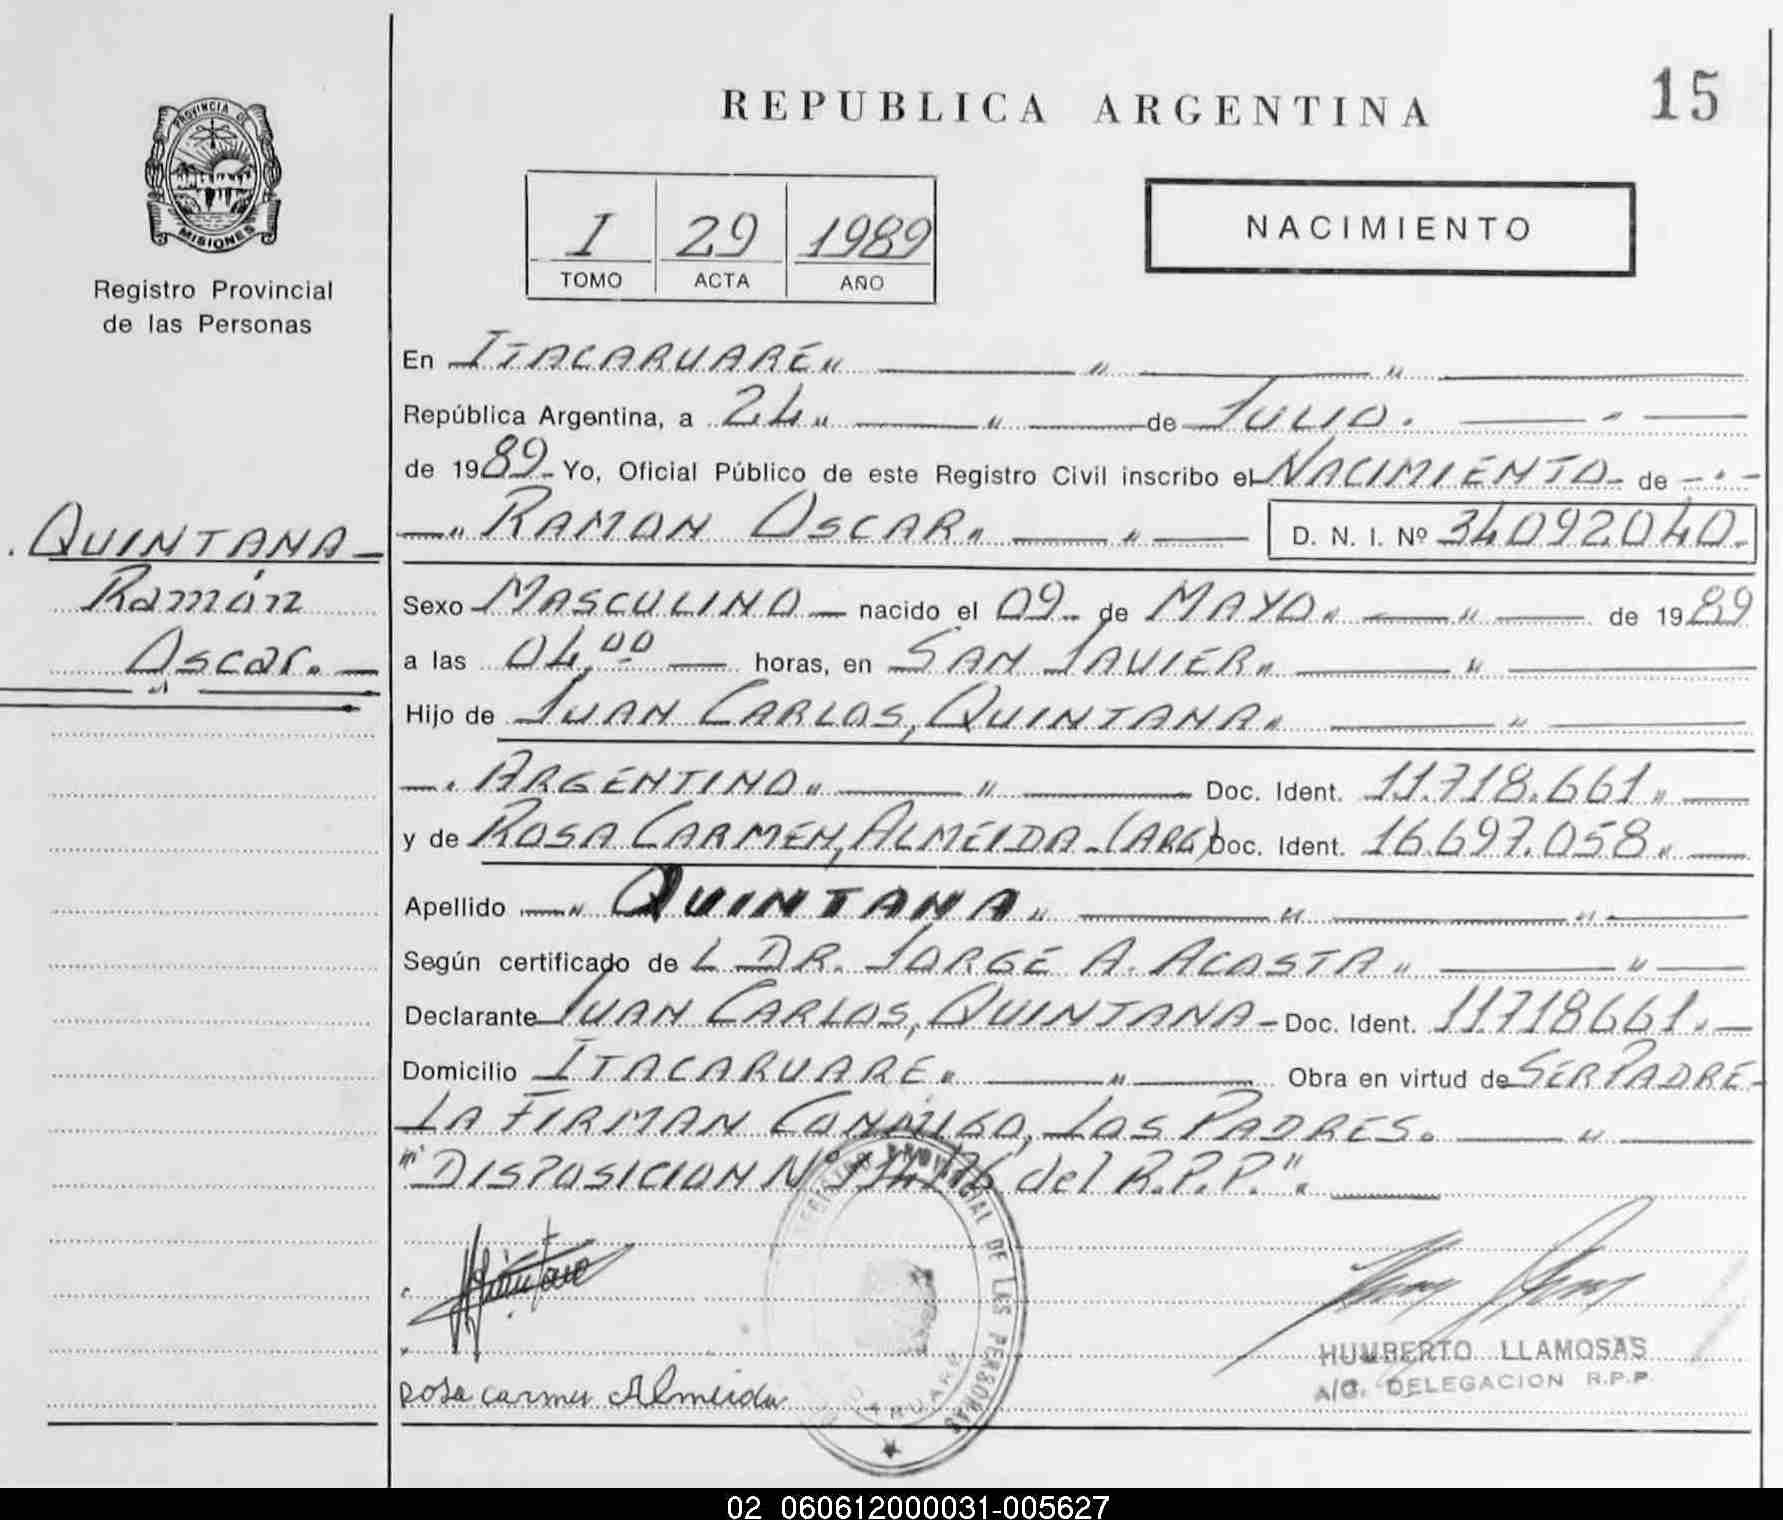 REPUBLICA ARGENTINA
15
PROVINCIA DE
MISIONES
Registro Provincial
de las Personas
I 29 1989
TOMO ACTA AÑO
NACIMIENTO
En ITACARUARE
República Argentina, a 24 de JULIO.
de 1989 Yo, Oficial Público de este Registro Civil inscribo el NACIMIENTO de
RAMON OSCAR D. N. I. Nº 34092040.
QUINTANA
Ramón
Oscar.
Sexo MASCULINO nacido el 09 de MAYO de 1989
a las 04,00 horas, en SAN JAVIER
Hijo de JUAN CARLOS, QUINTANA
ARGENTINO Doc. Ident. 11.718.661
y de ROSA CARMEN, ALMEIDA (ARG) Doc. Ident. 16.697.058
Apellido QUINTANA
Según certificado de L DR. JORGE A. ACOSTA
Declarante JUAN CARLOS, QUINTANA Doc. Ident. 11718661.
Domicilio ITACARUARE. Obra en virtud de SER PADRE
LA FIRMAN CONMIGO, LOS PADRES.
"DISPOSICION Nº del R.P.P.".
REGISTRO PROVINCIAL DE LAS PERSONAS
HUMBERTO LLAMOSAS
A/C. DELEGACION R.P.P.
Rosa Carmen Almeida
02 060612000031-005627